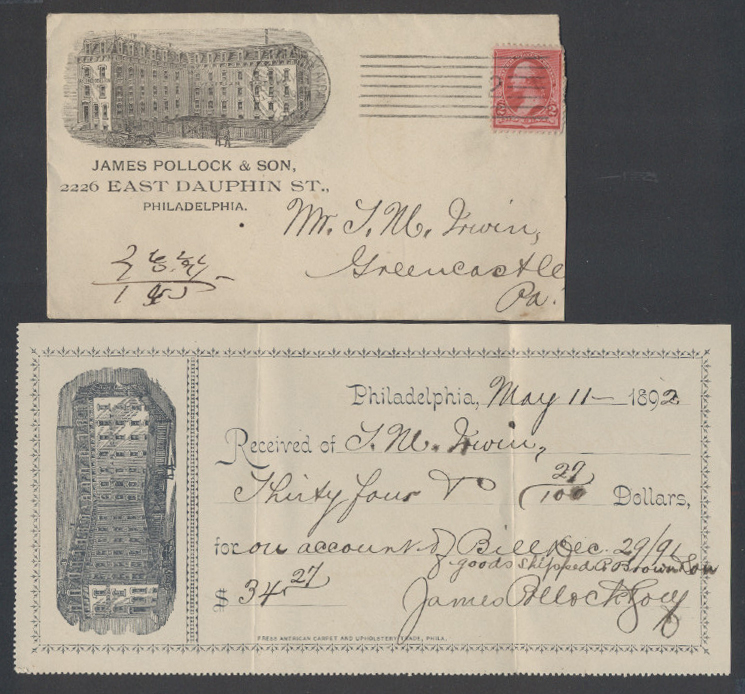 JAMES POLLOCK & SON,
2226 EAST DAUPHIN ST.,
PHILADELPHIA.
2 2
Mr. T. M. Irwin,
Greencastle
Pa.
Philadelphia, May 11 - 1892
Received of T. M. Irwin,
Thirty four & 27/100 Dollars,
for on account of Bill Dec. 29/91
& goods shipped Brown & Son
$ 34.27
James Pollock & Son
PRESS AMERICAN CARPET AND UPHOLSTERY TRADE, PHILA.